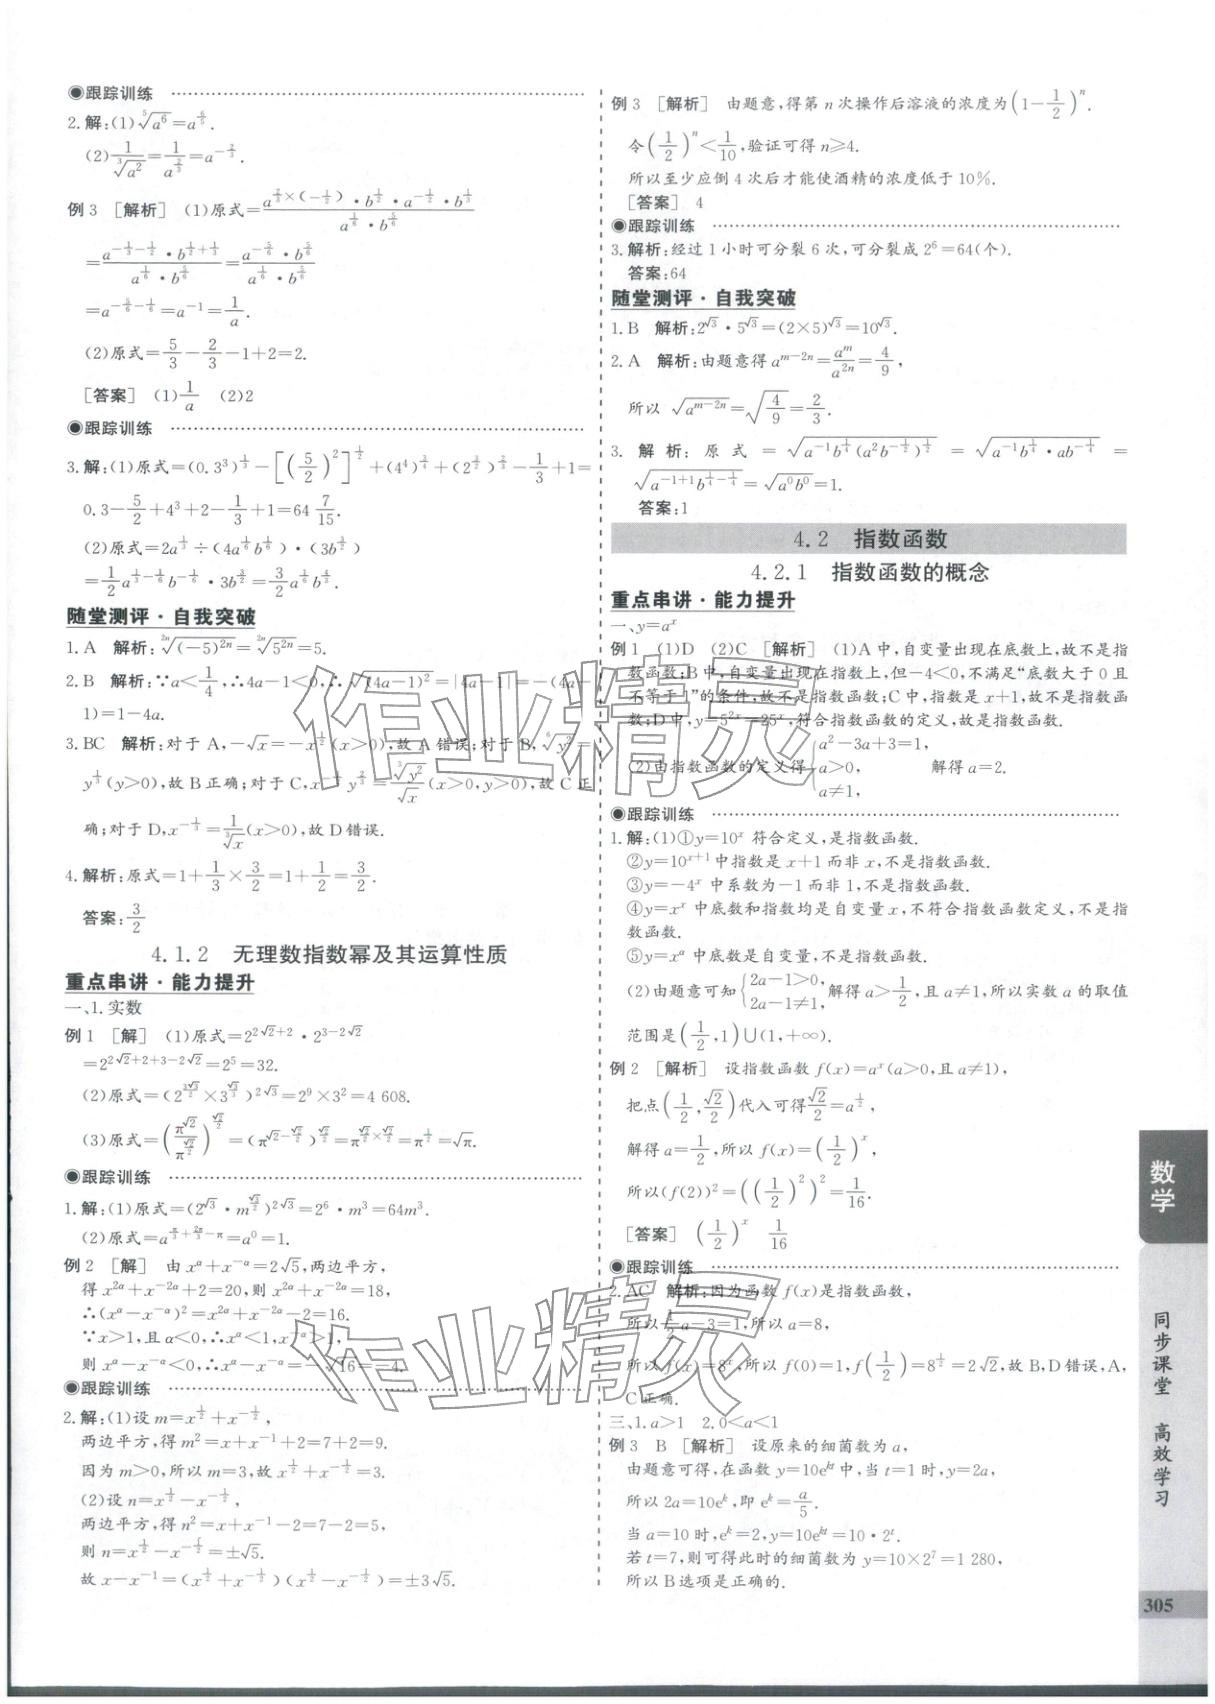 ◉跟踪训练
2.解:(1)$\sqrt[5]{a^6}=a^{\frac{6}{5}}$.
(2)$\frac{1}{\sqrt[3]{a^2}}=\frac{1}{a^{\frac{2}{3}}}=a^{-\frac{2}{3}}$.
例3 [解析] (1)原式=$\frac{a^{\frac{2}{3}×(-\frac{1}{2})}·b^{\frac{1}{2}}·a^{-\frac{1}{2}}·b^{\frac{1}{3}}}{a^{\frac{1}{6}}·b^{\frac{5}{6}}}$
=$\frac{a^{-\frac{1}{3}-\frac{1}{2}}·b^{\frac{1}{2}+\frac{1}{3}}}{a^{\frac{1}{6}}·b^{\frac{5}{6}}}=\frac{a^{-\frac{5}{6}}·b^{\frac{5}{6}}}{a^{\frac{1}{6}}·b^{\frac{5}{6}}}$
=$a^{-\frac{5}{6}-\frac{1}{6}}=a^{-1}=\frac{1}{a}$.
(2)原式=$\frac{5}{3}-\frac{2}{3}-1+2=2$.
[答案] (1)$\frac{1}{a}$ (2)2
◉跟踪训练
3.解:(1)原式=$(0.3^3)^{\frac{1}{3}}-[(\frac{5}{2})^2]^{\frac{1}{2}}+(4^4)^{\frac{3}{4}}+(2^{\frac{3}{2}})^{\frac{2}{3}}-\frac{1}{3}+1=$
$0.3-\frac{5}{2}+4^3+2-\frac{1}{3}+1=64\frac{7}{15}$.
(2)原式=$2a^{\frac{1}{3}}÷(4a^{\frac{1}{6}}b^{\frac{1}{6}})·(3b^{\frac{3}{2}})$
=$\frac{1}{2}a^{\frac{1}{3}-\frac{1}{6}}b^{-\frac{1}{6}}·3b^{\frac{3}{2}}=\frac{3}{2}a^{\frac{1}{6}}b^{\frac{4}{3}}$.
随堂测评·自我突破
1.A 解析:$\sqrt[2n]{(-5)^{2n}}=\sqrt[2n]{5^{2n}}=5$.
2.B 解析:∵$a<\frac{1}{4}$,∴$4a-1<0$,∴$\sqrt{(4a-1)^2}=|4a-1|=-(4a-$
$1)=1-4a$.
3.BC 解析:对于A,$-\sqrt{x}=-x^{\frac{1}{2}}(x>0)$,故A错误;对于B,$\sqrt[6]{y^2}=$
$y^{\frac{1}{3}}(y>0)$,故B正确;对于C,$x^{-\frac{1}{2}}y^{\frac{2}{3}}=\frac{\sqrt[3]{y^2}}{\sqrt{x}}(x>0,y>0)$,故C正
确;对于D,$x^{-\frac{1}{3}}=\frac{1}{\sqrt[3]{x}}(x>0)$,故D错误.
4.解析:原式=$1+\frac{1}{3}×\frac{3}{2}=1+\frac{1}{2}=\frac{3}{2}$.
答案:$\frac{3}{2}$
4.1.2 无理数指数幂及其运算性质
重点串讲·能力提升
一、1.实数
例1 [解] (1)原式=$2^{2\sqrt{2}+2}·2^{3-2\sqrt{2}}$
=$2^{2\sqrt{2}+2+3-2\sqrt{2}}=2^5=32$.
(2)原式=$(2^{\frac{3\sqrt{3}}{2}}×3^{\frac{\sqrt{3}}{3}})^{2\sqrt{3}}=2^9×3^2=4 608$.
(3)原式=$(\frac{π^{\sqrt{2}}}{π^{\frac{\sqrt{2}}{2}}})^{\frac{\sqrt{2}}{2}}=(π^{\sqrt{2}-\frac{\sqrt{2}}{2}})^{\frac{\sqrt{2}}{2}}=π^{\frac{\sqrt{2}}{2}×\frac{\sqrt{2}}{2}}=π^{\frac{1}{2}}=\sqrt{π}$.
◉跟踪训练
1.解:(1)原式=$(2^{\sqrt{3}}·m^{\frac{\sqrt{3}}{2}})^{2\sqrt{3}}=2^6·m^3=64m^3$.
(2)原式=$a^{\frac{π}{3}+\frac{2π}{3}-π}=a^0=1$.
例2 [解] 由$x^α+x^{-α}=2\sqrt{5}$,两边平方,
得$x^{2α}+x^{-2α}+2=20$,则$x^{2α}+x^{-2α}=18$,
∴$(x^α-x^{-α})^2=x^{2α}+x^{-2α}-2=16$.
∵$x>1$,且$α<0$,∴$x^α<1,x^{-α}>1$,
则$x^α-x^{-α}<0$,∴$x^α-x^{-α}=-\sqrt{16}=-4$.
◉跟踪训练
2.解:(1)设$m=x^{\frac{1}{2}}+x^{-\frac{1}{2}}$,
两边平方,得$m^2=x+x^{-1}+2=7+2=9$.
因为$m>0$,所以$m=3$,故$x^{\frac{1}{2}}+x^{-\frac{1}{2}}=3$.
(2)设$n=x^{\frac{1}{2}}-x^{-\frac{1}{2}}$,
两边平方,得$n^2=x+x^{-1}-2=7-2=5$,
则$n=x^{\frac{1}{2}}-x^{-\frac{1}{2}}=±\sqrt{5}$.
故$x-x^{-1}=(x^{\frac{1}{2}}+x^{-\frac{1}{2}})(x^{\frac{1}{2}}-x^{-\frac{1}{2}})=±3\sqrt{5}$.
例3 [解析] 由题意,得第n次操作后溶液的浓度为$(1-\frac{1}{2})^n$.
令$(\frac{1}{2})^n<\frac{1}{10}$,验证可得$n≥4$.
所以至少应倒4次后才能使酒精的浓度低于10%.
[答案] 4
◉跟踪训练
3.解析:经过1小时可分裂6次,可分裂成$2^6=64$(个).
答案:64
随堂测评·自我突破
1.B 解析:$2^{\sqrt{3}}·5^{\sqrt{3}}=(2×5)^{\sqrt{3}}=10^{\sqrt{3}}$.
2.A 解析:由题意得$a^{m-2n}=\frac{a^m}{a^{2n}}=\frac{4}{9}$,
所以$\sqrt{a^{m-2n}}=\sqrt{\frac{4}{9}}=\frac{2}{3}$.
3. 解析:原式=$\sqrt{a^{-1}b^{\frac{1}{4}}(a^2b^{-\frac{1}{2}})^{\frac{1}{2}}}=\sqrt{a^{-1}b^{\frac{1}{4}}·ab^{-\frac{1}{4}}}=$
$\sqrt{a^{-1+1}b^{\frac{1}{4}-\frac{1}{4}}}=\sqrt{a^0b^0}=1$.
答案:1
4.2 指数函数
4.2.1 指数函数的概念
重点串讲·能力提升
一、$y=a^x$
例1 (1)D (2)C [解析] (1)A中,自变量出现在底数上,故不是指
数函数;B中,自变量出现在指数上,但$-4<0$,不满足“底数大于0且
不等于1”的条件,故不是指数函数;C中,指数是$x+1$,故不是指数函
数;D中,$y=5^{2x}=25^x$,符合指数函数的定义,故是指数函数.
(2)由指数函数的定义得$\begin{cases}a^2-3a+3=1,\\a>0,\\a≠1,\end{cases}$ 解得$a=2$.
◉跟踪训练
1.解:(1)①$y=10^x$符合定义,是指数函数.
②$y=10^{x+1}$中指数是$x+1$而非$x$,不是指数函数.
③$y=-4^x$中系数为$-1$而非1,不是指数函数.
④$y=x^x$中底数和指数均是自变量$x$,不符合指数函数定义,不是指
数函数.
⑤$y=x^α$中底数是自变量,不是指数函数.
(2)由题意可知$\begin{cases}2a-1>0,\\2a-1≠1,\end{cases}$解得$a>\frac{1}{2}$,且$a≠1$,所以实数$a$的取值
范围是$(\frac{1}{2},1)∪(1,+∞)$.
例2 [解析] 设指数函数$f(x)=a^x(a>0,且a≠1)$,
把点$(\frac{1}{2},\frac{\sqrt{2}}{2})$代入可得$\frac{\sqrt{2}}{2}=a^{\frac{1}{2}}$,
解得$a=\frac{1}{2}$,所以$f(x)=(\frac{1}{2})^x$,
所以$(f(2))^2=((\frac{1}{2})^2)^2=\frac{1}{16}$.
[答案] $(\frac{1}{2})^x$ $\frac{1}{16}$
◉跟踪训练
2.AC 解析:因为函数$f(x)$是指数函数,
所以$\frac{1}{2}a-3=1$,所以$a=8$,
所以$f(x)=8^x$,所以$f(0)=1,f(\frac{1}{2})=8^{\frac{1}{2}}=2\sqrt{2}$,故B,D错误,A,
C正确.
三、1.$a>1$ 2.$0<a<1$
例3 B [解析] 设原来的细菌数为$a$,
由题意可得,在函数$y=10e^{kt}$中,当$t=1$时,$y=2a$,
所以$2a=10e^k$,即$e^k=\frac{a}{5}$.
当$a=10$时,$e^k=2,y=10e^{kt}=10·2^t$.
若$t=7$,则可得此时的细菌数为$y=10×2^7=1 280$,
所以B选项是正确的.
数学
同步课堂 高效学习
305
作业精灵
作业精灵